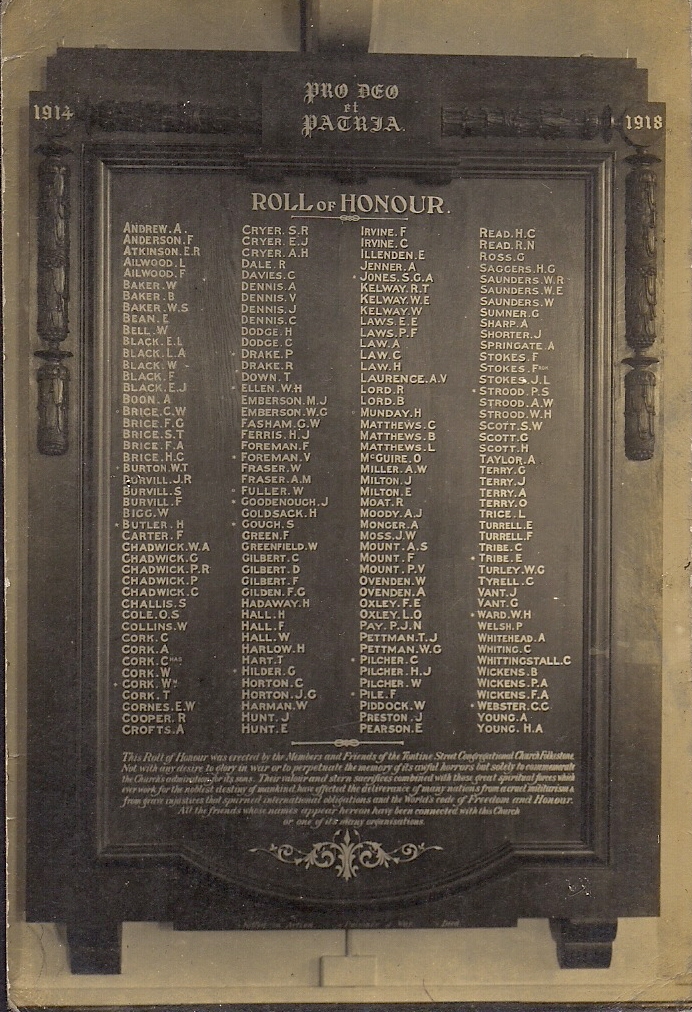 PRO DEO
et
PATRIA.
1914
1918
ROLL OF HONOUR.
ANDREW.A.
ANDERSON.F
ATKINSON.E.R
AILWOOD.L
AILWOOD.F
BAKER.W
BAKER.B
BAKER.W.S
BEAN.E
BELL.W
BLACK.E.L
BLACK.L.A
BLACK.W
BLACK.F
BLACK.E.J
BOON.A
BRICE.C.W
BRICE.F.G
BRICE.S.T
BRICE.F.A
BRICE.H.C
BURTON.W.T
DURVILL.J.R
BURVILL.S
BURVILL.F
BIGG.W
BUTLER.H
CARTER.F
CHADWICK.W.A
CHADWICK.G
CHADWICK.P.R
CHADWICK.P
CHADWICK.C
CHALLIS.S
COLE.O.S
COLLINS.W
CORK.C
CORK.A
CORK.CHAS
CORK.W
CORK.WM
CORK.T
CORNES.E.W
COOPER.R
CROFTS.A
CRYER.S.R
CRYER.E.J
CRYER.A.H
DALE.R
DAVIES.C
DENNIS.A
DENNIS.V
DENNIS.J
DENNIS.C
DODGE.H
DODGE.C
DRAKE.P
DRAKE.R
DOWN.T
ELLEN.W.H
EMBERSON.M.J
EMBERSON.W.G
FASHAM.G.W
FERRIS.H.J
FOREMAN.F
FOREMAN.V
FRASER.W
FRASER.A.M
FULLER.W
GOODENOUGH.J
GOLDSACK.H
GOUGH.S
GREEN.F
GREENFIELD.W
GILBERT.C
GILBERT.D
GILBERT.F
GILDEN.F.G
HADAWAY.H
HALL.H
HALL.F
HALL.W
HARLOW.H
HART.T
HILDER.G
HORTON.C
HORTON.J.G
HARMAN.W
HUNT.J
HUNT.E
IRVINE.F
IRVINE.C
ILLENDEN.E
JENNER.A
JONES.S.G.A
KELWAY.R.T
KELWAY.W.E
KELWAY.W
LAWS.E.E
LAWS.P.F
LAW.A
LAW.C
LAW.H
LAURENCE.A.V
LORD.R
LORD.B
MUNDAY.H
MATTHEWS.C
MATTHEWS.B
MATTHEWS.L
McGUIRE.O
MILLER.A.W
MILTON.J
MILTON.E
MOAT.R
MOODY.A.J
MONGER.A
MOSS.J.W
MOUNT.A.S
MOUNT.F
MOUNT.P.V
OVENDEN.W
OVENDEN.A
OXLEY.F.E
OXLEY.L.O
PAY.P.J.N
PETTMAN.T.J
PETTMAN.W.G
PILCHER.C
PILCHER.H.J
PILCHER.W
PILE.F
PIDDOCK.W
PRESTON.J
PEARSON.E
READ.H.C
READ.R.N
ROSS.G
SAGGERS.H.G
SAUNDERS.W.R
SAUNDERS.W.E
SAUNDERS.W
SUMNER.G
SHARP.A
SHORTER.J
SPRINGATE.A
STOKES.F
STOKES.
STOKES.J.L
STROOD.P.S
STROOD.A.W
STROOD.W.H
SCOTT.S.W
SCOTT.G
SCOTT.H
TAYLOR.A
TERRY.G
TERRY.J
TERRY.A
TERRY.O
TRICE.L
TURRELL.E
TURRELL.F
TRIBE.C
TRIBE.E
TURLEY.W.G
TYRELL.C
VANT.J
VANT.G
WARD.W.H
WELSH.P
WHITEHEAD.A
WHITING.C
WHITTINGSTALL.C
WICKENS.B
WICKENS.P.A
WICKENS.F.A
WEBSTER.C.C
YOUNG.A
YOUNG.H.A
This Roll of Honour was erected by the Members and Friends of the Tontine Street Congregational Church Folkestone
Not with any desire to glory in war or to perpetuate the memory of its awful horrors but solely to commemorate
the Church's admiration for its sons. Their valour and stern sacrifices combined with those great spiritual forces which
ever work for the noblest destiny of mankind have effected the deliverance of many nations from a cruel militarism &
from grave injustices that spurned international obligations and the World's code of Freedom and Honour.
All the friends whose names appear hereon have been connected with this Church
or one of its many organisations.